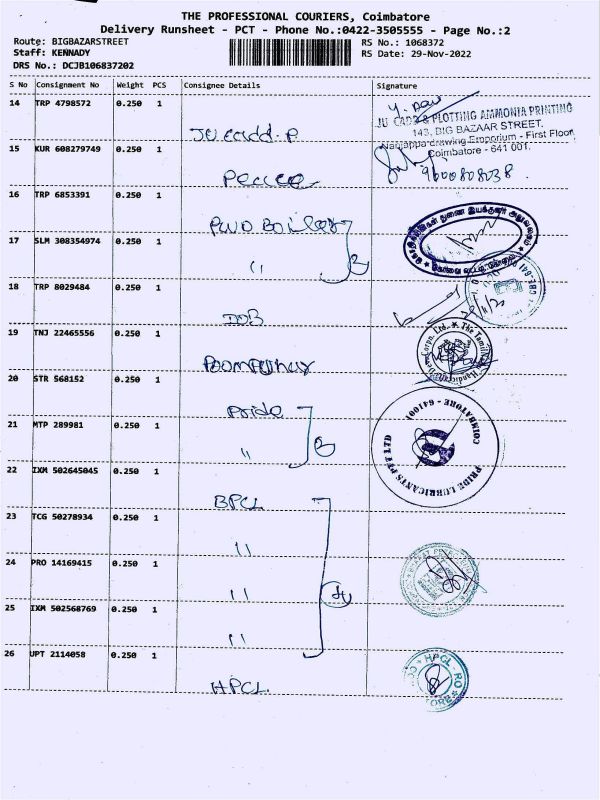 THE PROFESSIONAL COURIERS, Coimbatore
Delivery Runsheet - PCT - Phone No.:0422-3505555 - Page No.:2
Route: BIGBAZARSTREET RS No.: 1068372
Staff: KENNADY RS Date: 29-Nov-2022
DRS No.: DCJB106837202
S No Consignment No Weight PCS Consignee Details Signature
14 TRP 4798572 0.250 1
JU CADD & PLOTTING AMMONIA PRINTING
143, BIG BAZAAR STREET.
Nanjappa drawing Emporium - First Floor,
Coimbatore - 641 001.
JU cadd. P
15 KUR 608279749 0.250 1
9600808038
16 TRP 6853391 0.250 1
PWD Boiler
17 SLM 308354974 0.250 1
" 2
18 TRP 8029484 0.250 1
IOB
19 TNJ 22465556 0.250 1
Poompuhar
20 STR 568152 0.250 1
Pride
21 MTP 289981 0.250 1
" 2
PRIDE LUBRICANTS PVT LTD
COIMBATORE - 641001
22 IXM 502645045 0.250 1
BPCL
23 TCG 50278934 0.250 1
"
24 PRO 14169415 0.250 1
" 4
25 IXM 502568769 0.250 1
"
26 UPT 2114058 0.250 1
HPCL
HPCL - RO